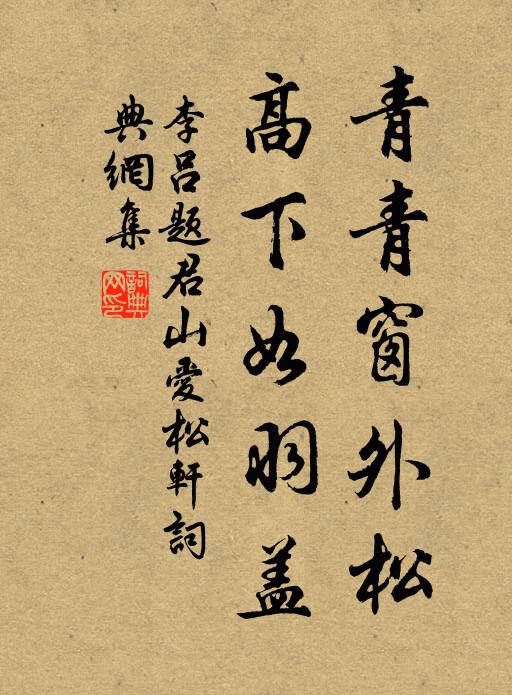 青青窗外松
高下如羽盖
李吕题君山爱松軒詞
典網集
詞典网印